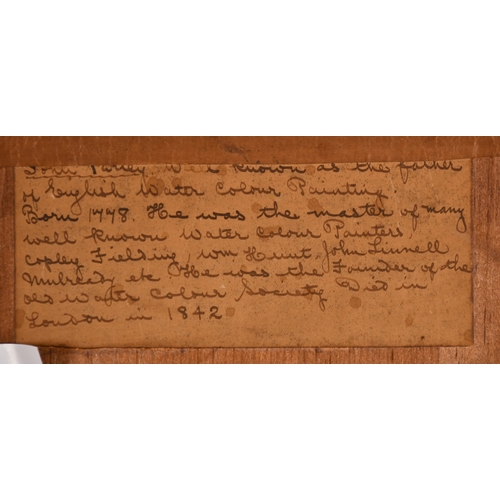 John Varley, was known as the father
of English Water Colour Painting
Born 1778. He was the master of many
well known Water Colour Painters
Copley Fielding, Wm Hunt, John Linnell
Mulready etc He was the Founder of the
old Water Colour Society Died in
London in 1842